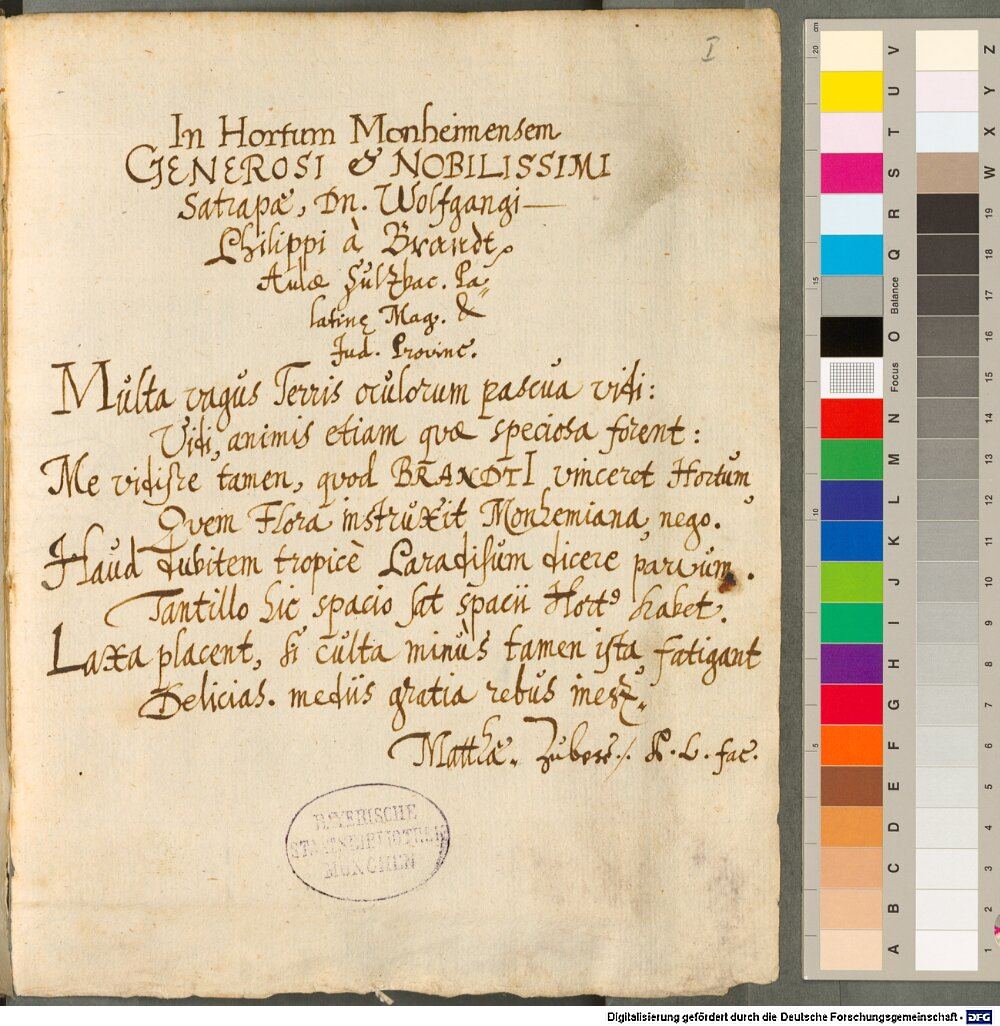 I
In Hortum Monheimensem
GENEROSI & NOBILISSIMI
Satrapæ, Dn. Wolfgangi
Philippi à Brandt,
Aulæ Sulzbac. Pa„
latinę Mag. &
Jud. Provinc.
Multa vagus Terris oculorum pascua vidi:
Vidi, animis etiam quæ speciosa forent:
Me vidisse tamen, quod BRANDTI vinceret Hortum
Quem Flora instruxit Monhemiana, nego.
Haud dubitem tropicè Paradisum dicere parvum.
Tantillo hic spacio sat spacii Hortꝰ habet.
Laxa placent, si culta minùs tamen ista fatigant
Delicias. mediis gratia rebus inest.
Matthæ. Zuber. P. L. fac.
BAYERISCHE
STAATSBIBLIOTHEK
MÜNCHEN
Digitalisierung gefördert durch die Deutsche Forschungsgemeinschaft - DFG